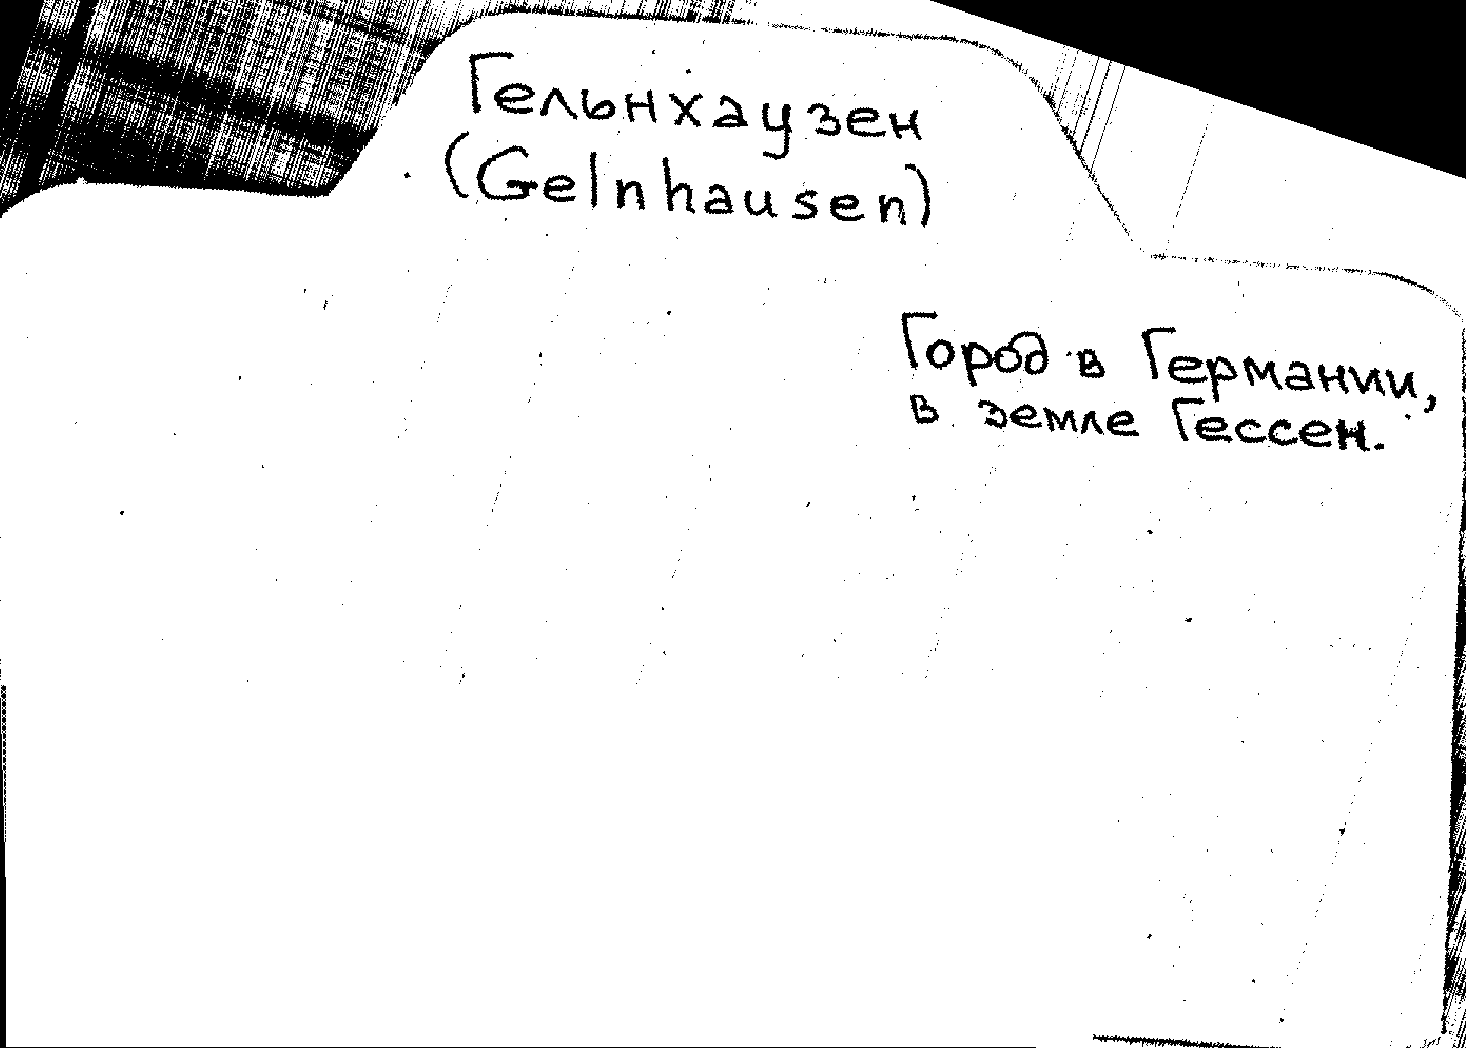 Гельнхаузен
(Gelnhausen)
Город в Германии,
в земле Гессен.